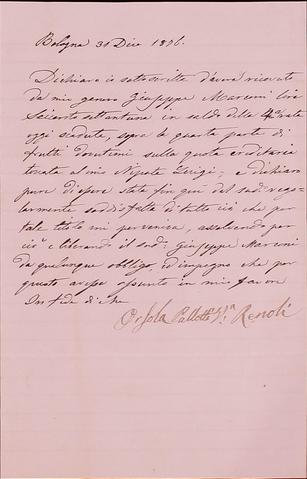 Bologna 31 Dice 1856.
Dichiaro io sottoscritta d'aver ricevuto
da mio genero Giuseppe Marconi lire
Seicento settantuna in saldo della 4a rata
oggi scaduta, sopra la quarta parte di
frutti dovutimi sulla quota ereditaria
toccata al mio Nipote Luigi; e dichiaro
pure d'essere stata fin qui dal sudo rego-
larmente soddisfatta di tutto ciò che per
tale titolo mi perveniva, assolvendo per
ciò e liberando il sudo Giuseppe Marconi
da qualunque obbligo, ed impegno che per
questo avesse assunto in mio favore
In fede di che
Orsola Pallotti Va Renoli